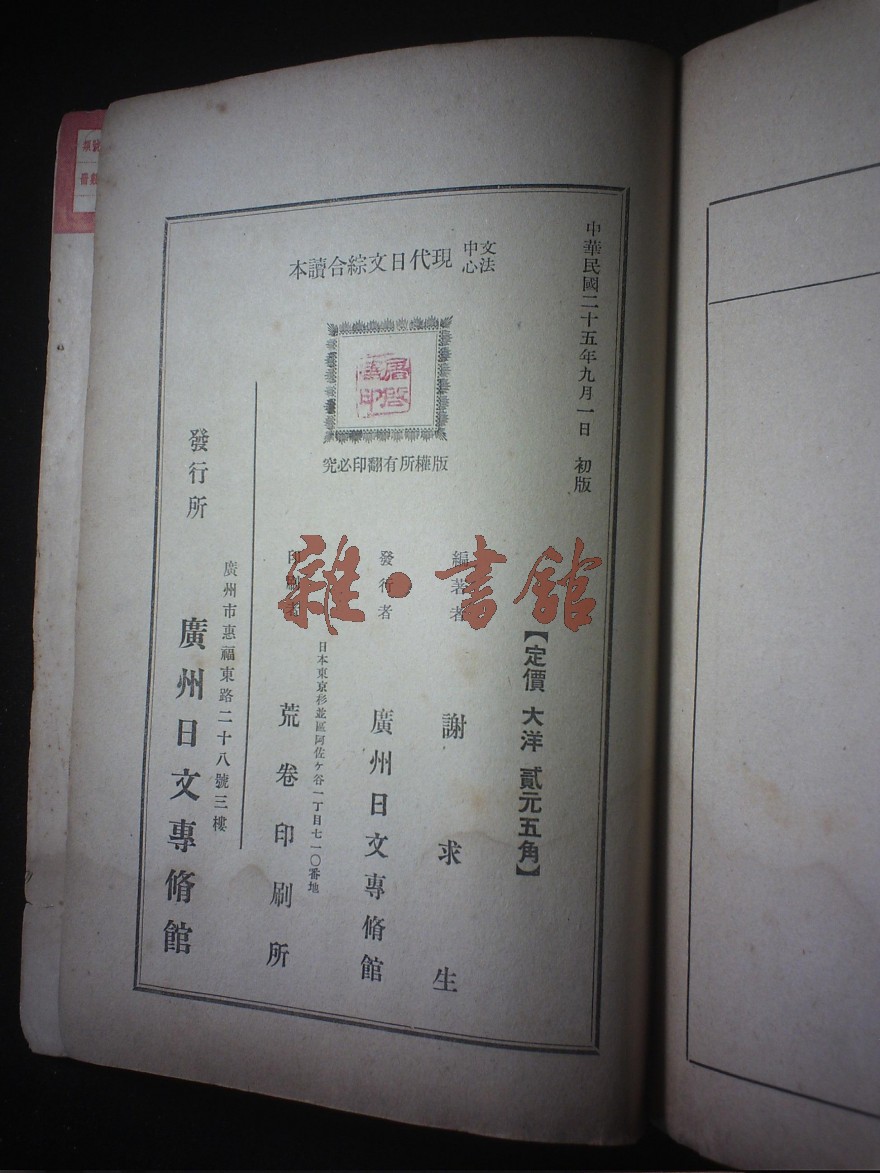 中華民國二十五年九月一日　初版
文法
中心
現代日文綜合讀本
版權所有翻印必究
【定價 大洋 貳元五角】
編著者　謝求生
發行者　廣州日文專脩館
日本東京杉並區阿佐ヶ谷一丁目七一〇番地
印刷者　荒卷印刷所
廣州市惠福東路二十八號三樓
發行所　廣州日文專脩館
雜·書館